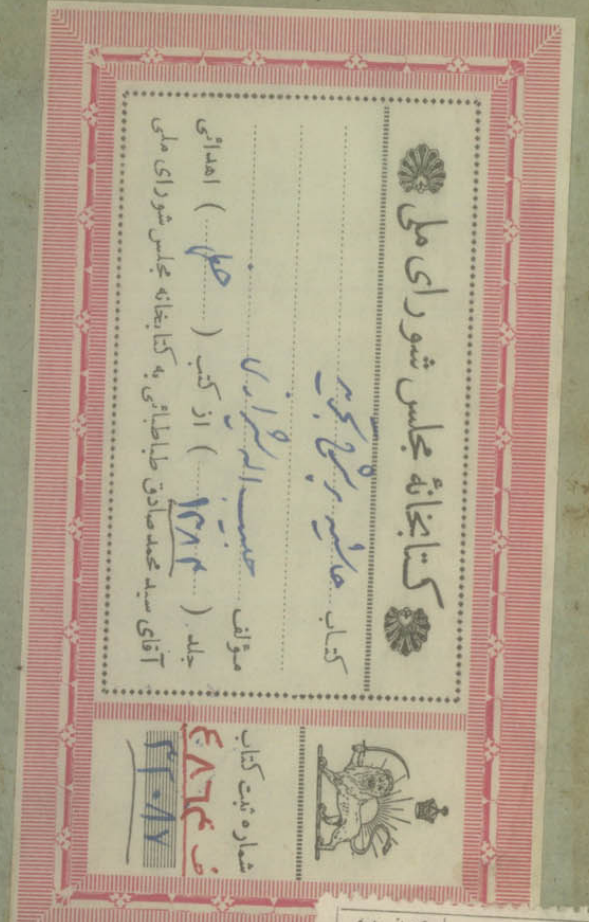 کتابخانهٔ مجلس شورای ملی
کتاب حاشیه بر شرح تجرید
مؤلف حبیب الله شیرازی
جلد ( ۱۳۸۴ ) از کتب ( خطی ) اهدائی
آقای سید محمد صادق طباطبائی به کتابخانه مجلس شورای ملی
شماره ثبت کتاب